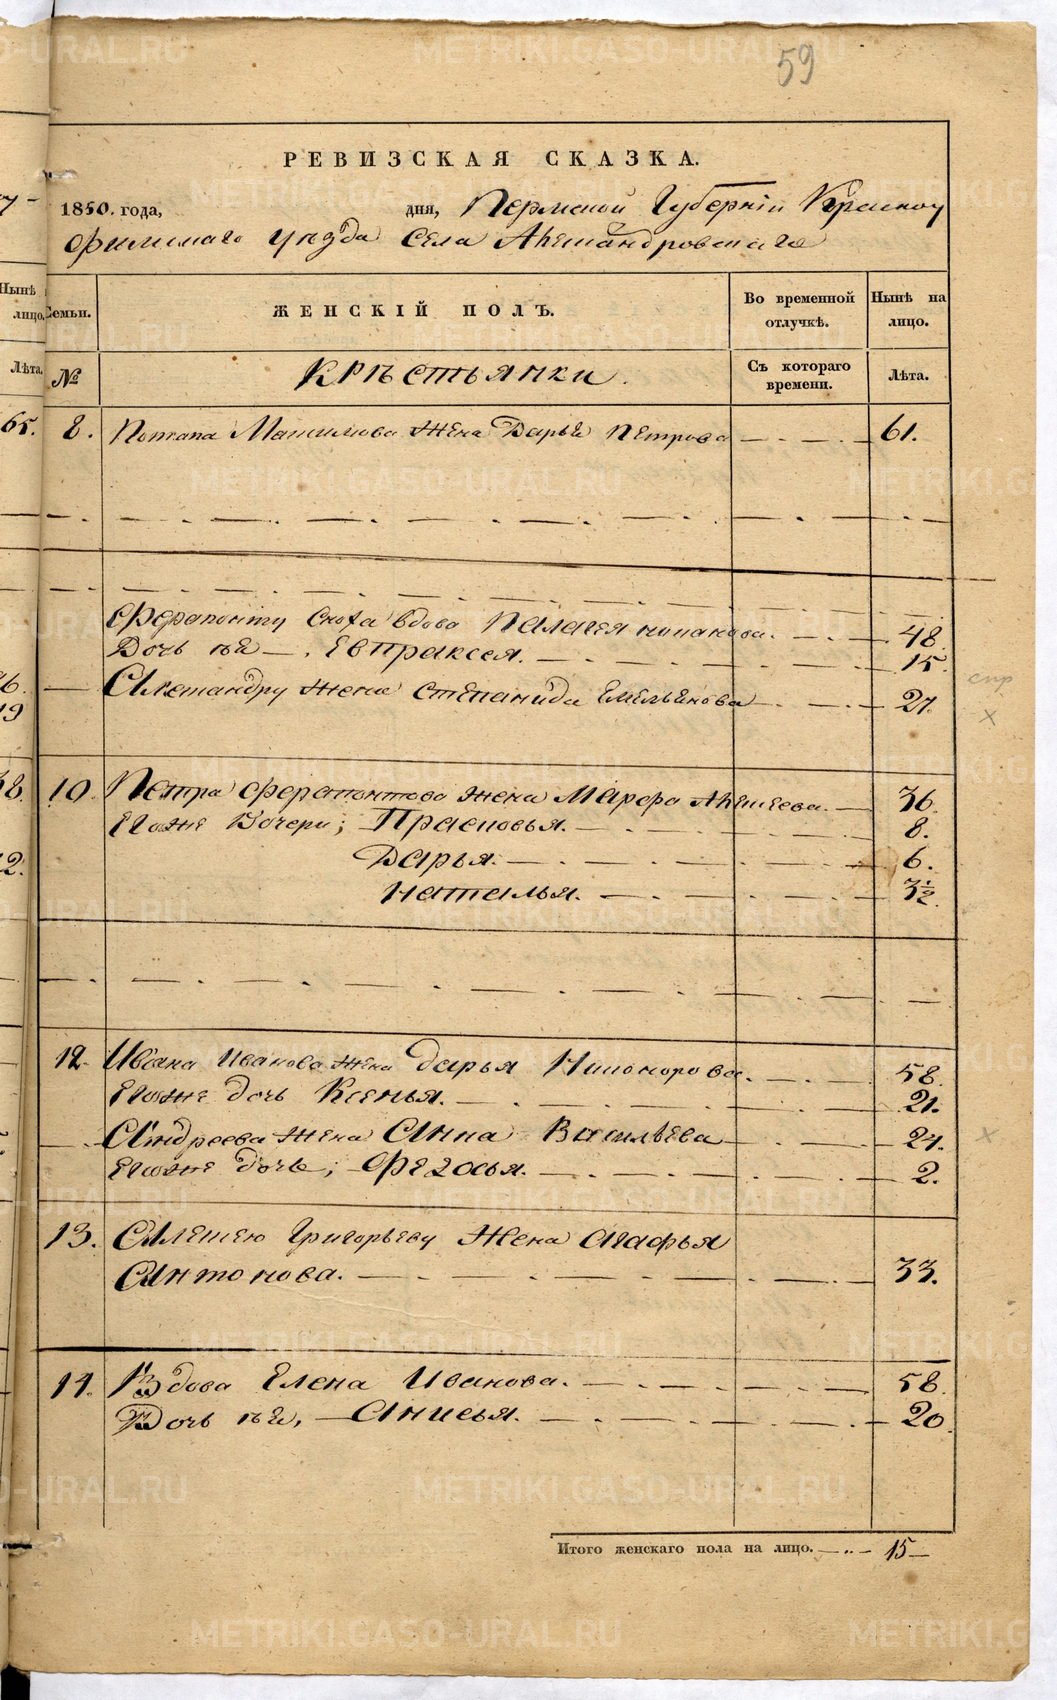 59
РЕВИЗСКАЯ СКАЗКА.
1850. года, дня, Пермской Губерніи Красноу
фимскаго уѣзда села Александровскаго
Нынѣ
лицо.
Лѣта.
Семьи.
ЖЕНСКІЙ ПОЛЪ.
Во временной отлучкѣ.
Нынѣ на лицо.
№
Крѣстьянки.
Съ котораго времени.
Лѣта.
65.
8. Потапа Максимова жена Дарья Петрова 61.
Ферапонту сноха вдова Палагея 48.
Дочь ѣѣ Евпраксея. 15.
Александру жена Степанида Емельянова 27.
спр
х
19
10. Петра Ферапонтова жена Марфа Алексеева. 36.
Егоже Дочери; Прасковья. 8.
Дарья. 6.
Наталья. 3½.
12. Ивана Иванова жена Дарья Никонорова. 58.
Егоже дочь Ксенья. 21.
Андреева жена Анна Васильева 24.
х
Егоже дочь; Федосья. 2.
13. Алексею Григорьеву жена Агафья
Антонова. 33.
14. Вдова Елена Иванова. 58.
Дочь ѣѣ, Анисья. 20.
Итого женскаго пола на лицо. 15
METRIKI.GASO-URAL.RU